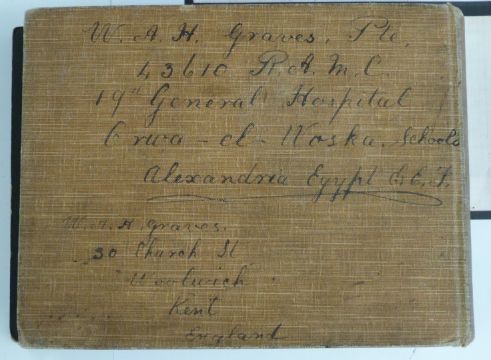 W. A. H. Graves. Pte.
43610 R.A.M.C.
19th General Hospital
Orwa-el-Woska. Schools
Alexandria Egypt E.E.F.
W. A. H. Graves.
30 Church St
Woolwich
Kent
England